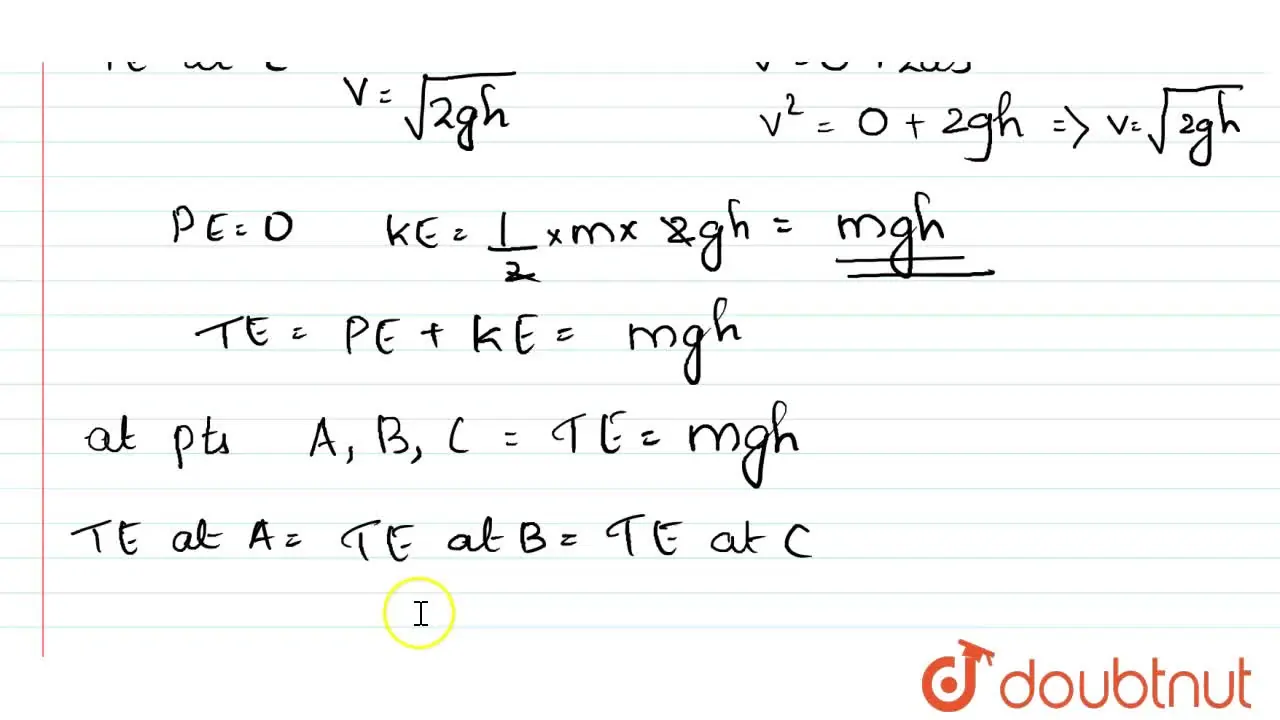 TE at C
V = √2gh
V² = 0 + 2gh => V = √2gh
PE = 0 KE = 1/2 × m × 2gh = mgh
TE = PE + KE = mgh
at pts A, B, C = TE = mgh
TE at A = TE at B = TE at C
doubtnut